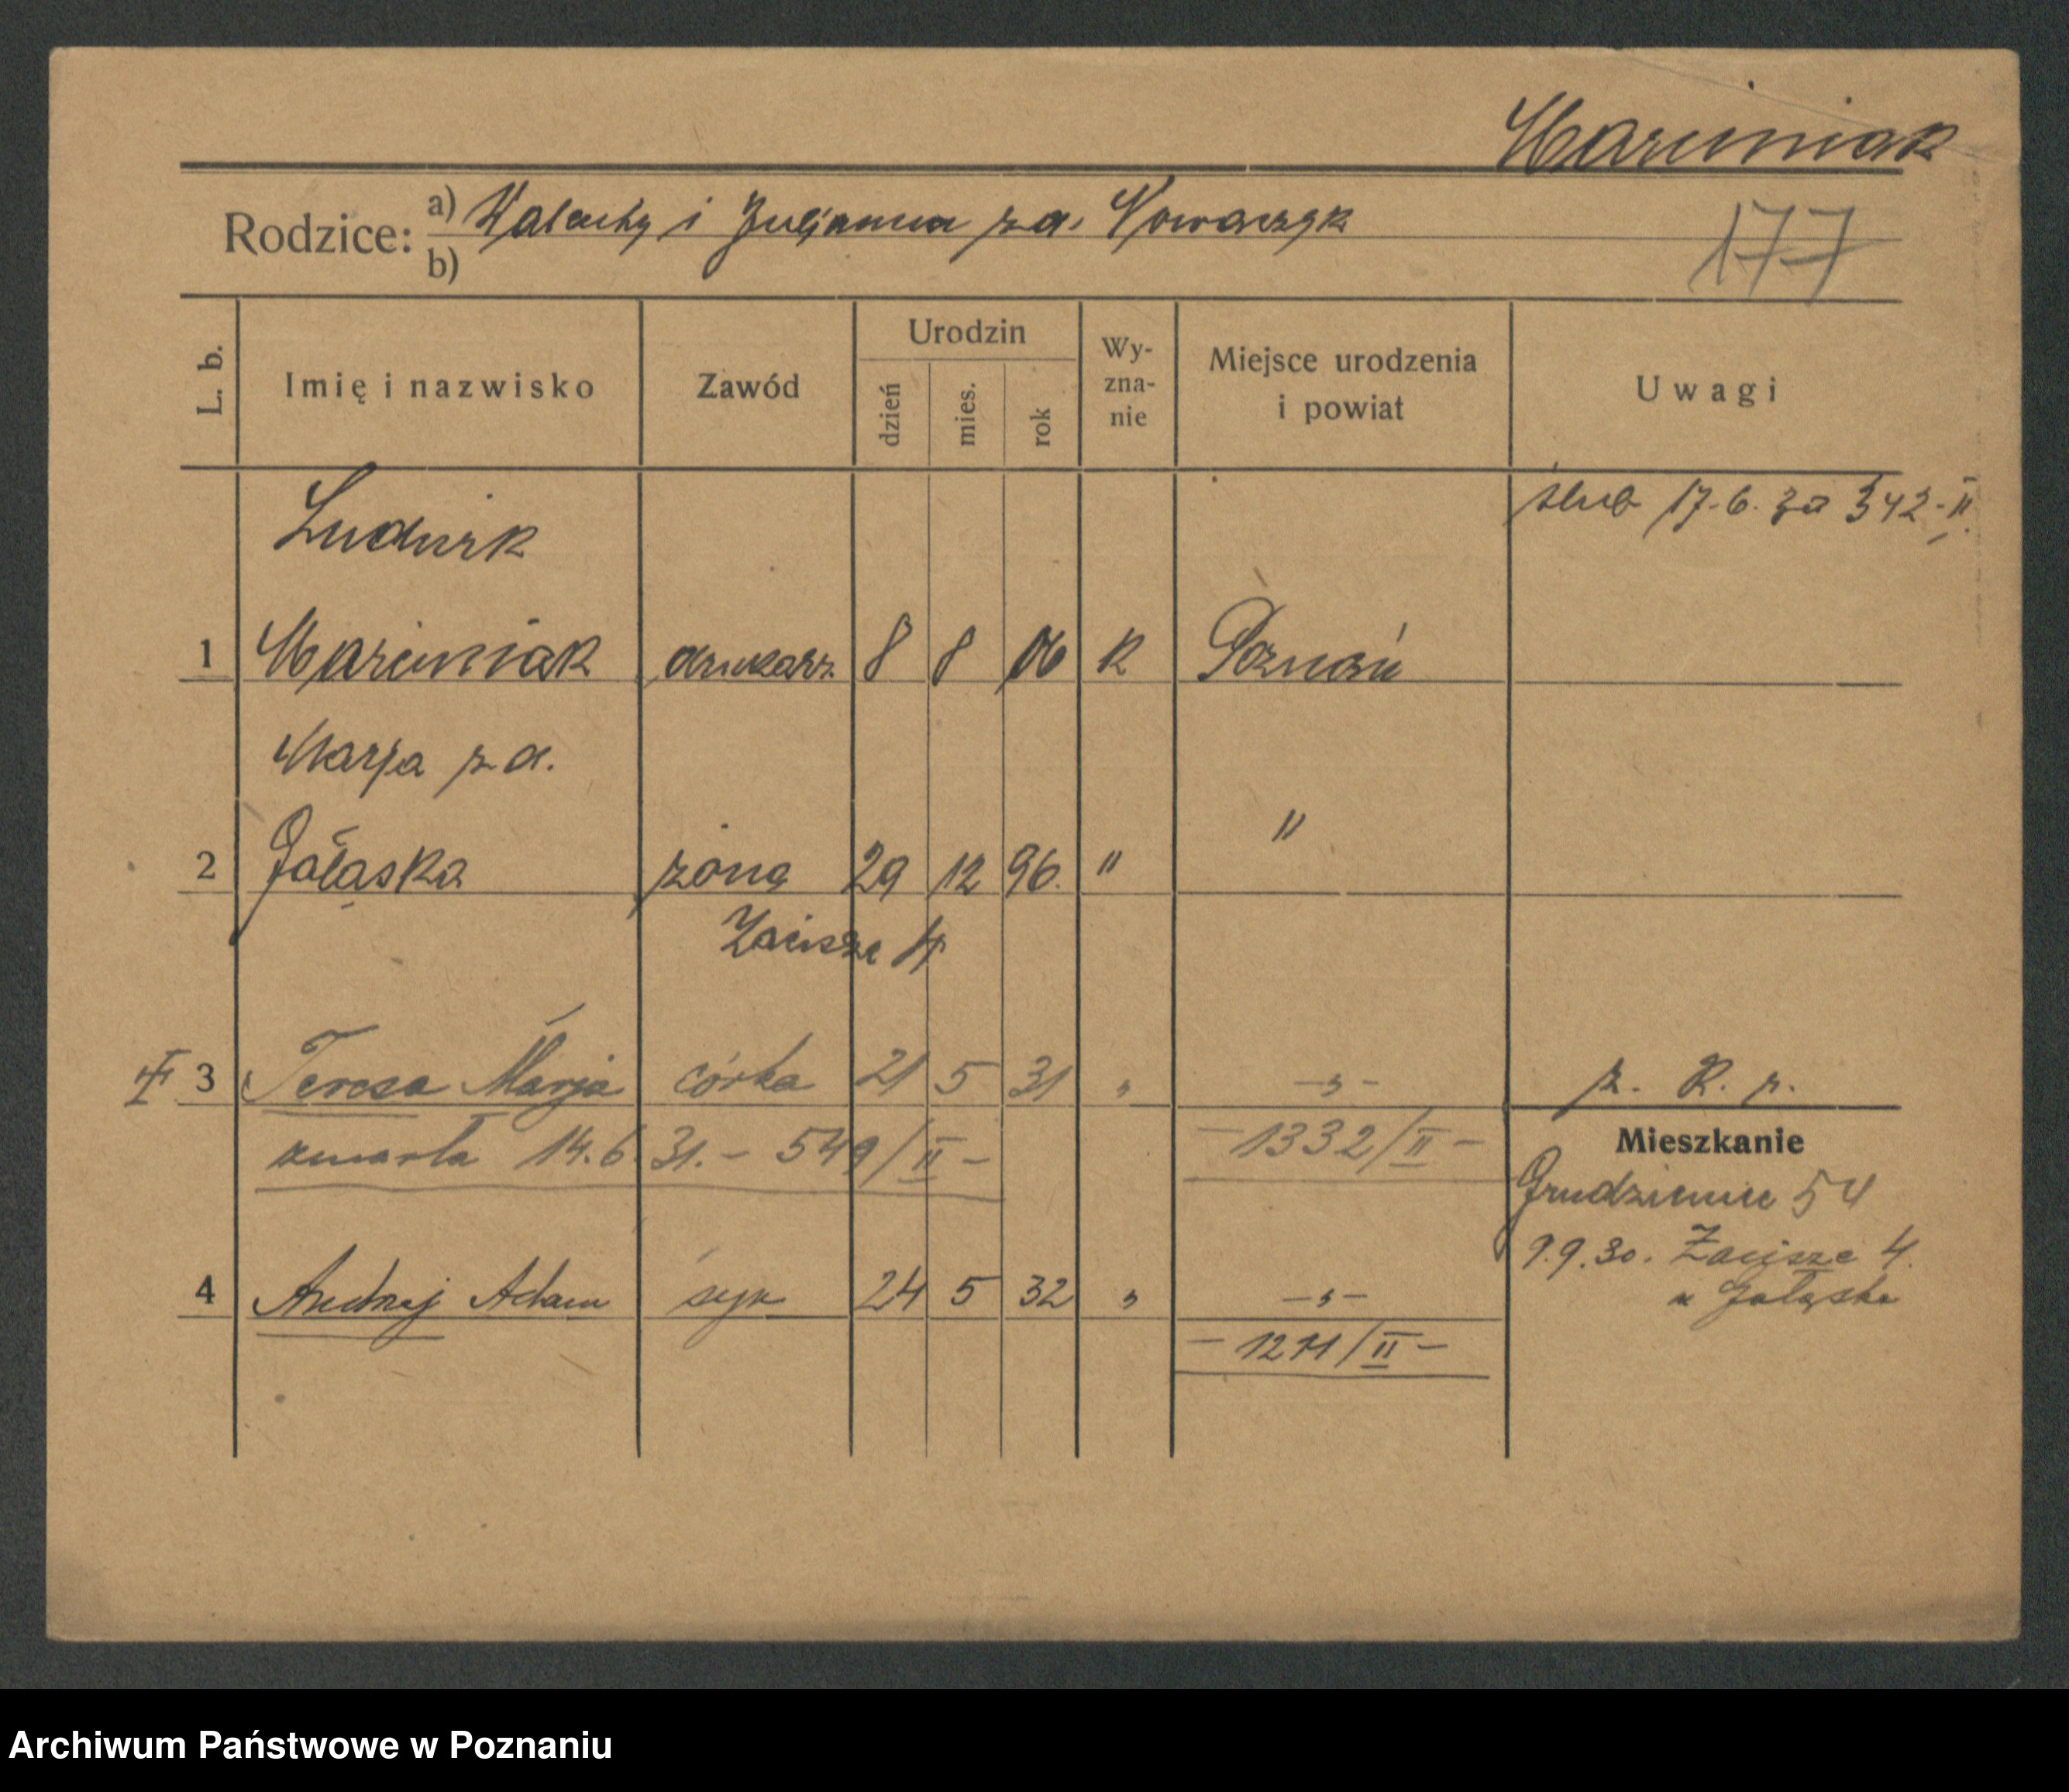 Marciniak
Rodzice: a) Walenty i Juljanna z d. Nowaczyk
b)
177
L. b.
Imię i nazwisko
Zawód
Urodzin
dzień
mies.
rok
Wy-
zna-
nie
Miejsce urodzenia
i powiat
Uwagi
ślub 17.6. za 342-II
Ludwik
1 Marciniak drukarz 8 8 06 k Poznań
Marja z d.
2 Gałąska żona 29 12 96. " "
Zacisze 4
3 Teresa Marja córka 21 5 31 " -"- z. K. p.
zmarła 14.6.31. - 549/II - - 1332/II -
Mieszkanie
Grudzieniec 54
9.9.30. Zacisze 4.
u Gałąska
4 Andrzej Adam syn 24 5 32 " -"-
- 1211/II -
Archiwum Państwowe w Poznaniu